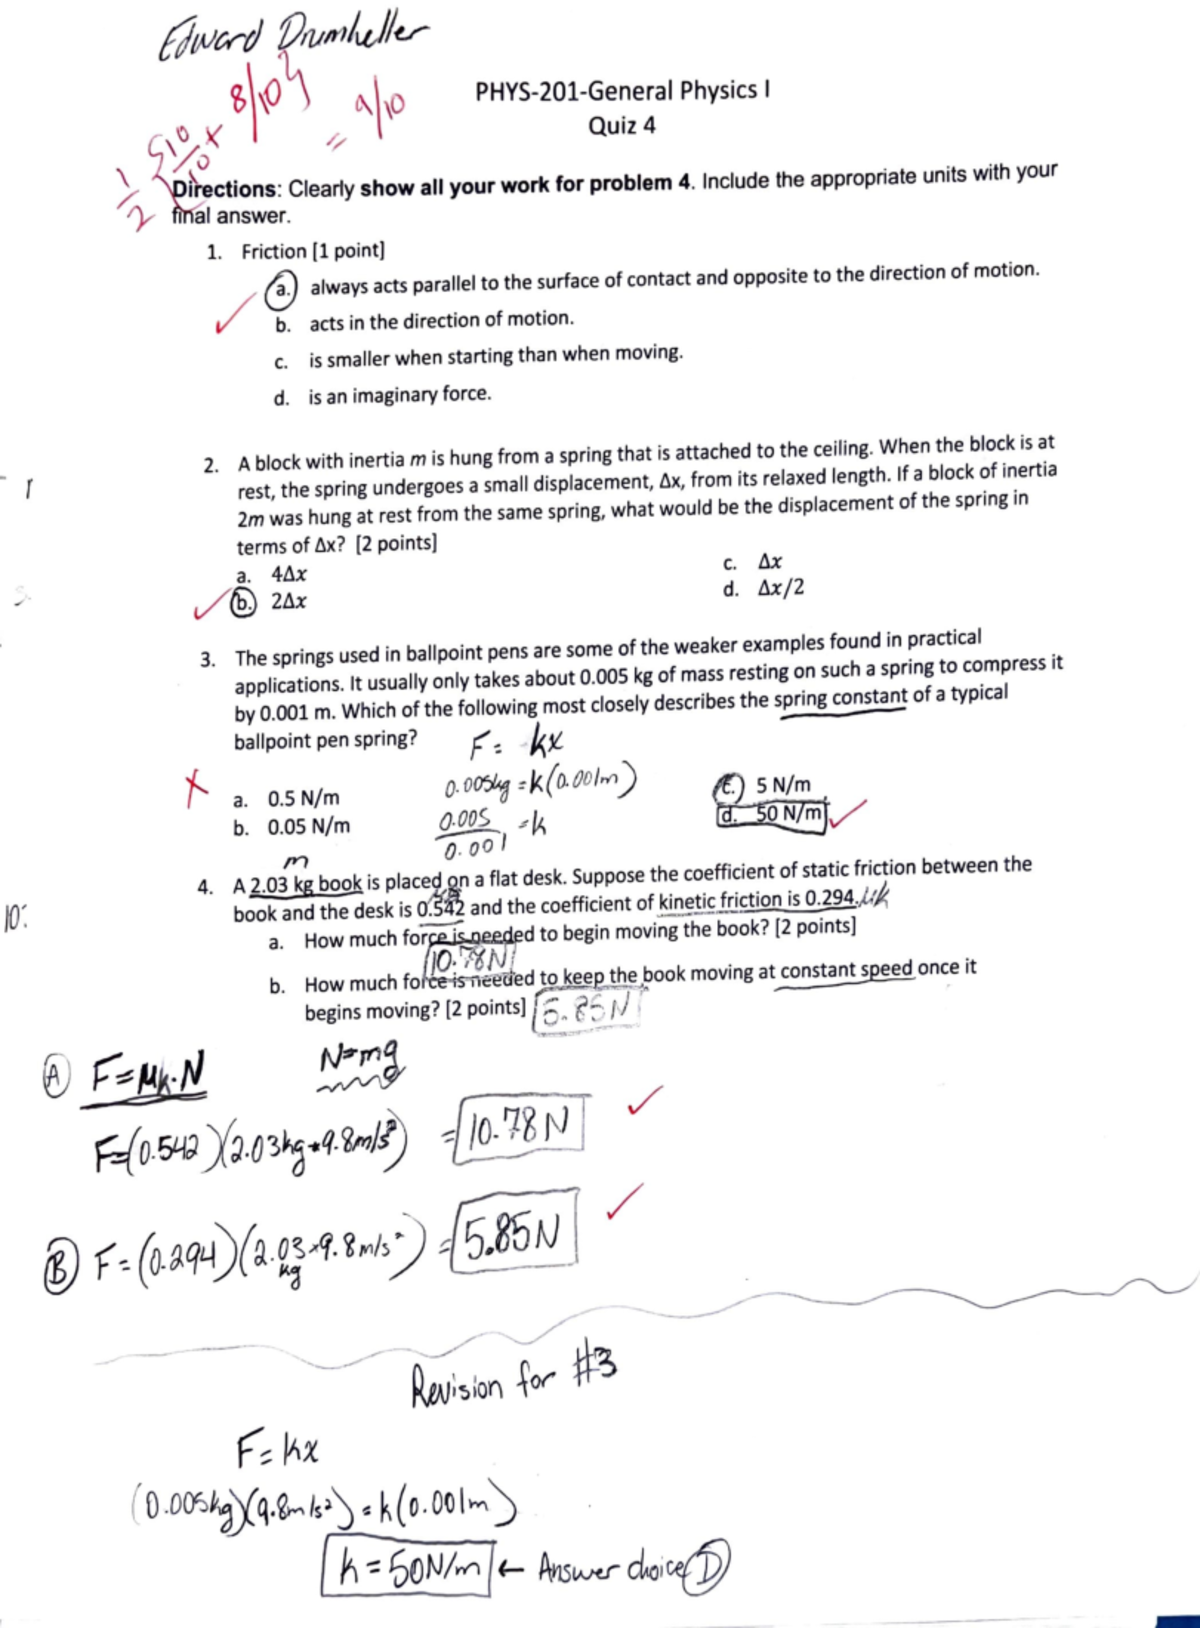 Edward Drumheller
1/2 {10/10 + 8/10} = 9/10
PHYS-201-General Physics I
Quiz 4
Directions: Clearly show all your work for problem 4. Include the appropriate units with your
final answer.
1. Friction [1 point]
a. always acts parallel to the surface of contact and opposite to the direction of motion.
b. acts in the direction of motion.
c. is smaller when starting than when moving.
d. is an imaginary force.
2. A block with inertia m is hung from a spring that is attached to the ceiling. When the block is at
rest, the spring undergoes a small displacement, Δx, from its relaxed length. If a block of inertia
2m was hung at rest from the same spring, what would be the displacement of the spring in
terms of Δx? [2 points]
a. 4Δx
b. 2Δx
c. Δx
d. Δx/2
3. The springs used in ballpoint pens are some of the weaker examples found in practical
applications. It usually only takes about 0.005 kg of mass resting on such a spring to compress it
by 0.001 m. Which of the following most closely describes the spring constant of a typical
ballpoint pen spring?
F = kx
0.005kg = k(0.001m)
0.005/0.001 = k
a. 0.5 N/m
b. 0.05 N/m
c. 5 N/m
d. 50 N/m
m
4. A 2.03 kg book is placed on a flat desk. Suppose the coefficient of static friction between the
book and the desk is 0.542 and the coefficient of kinetic friction is 0.294. μk
10:
a. How much force is needed to begin moving the book? [2 points]
10.78N
b. How much force is needed to keep the book moving at constant speed once it
begins moving? [2 points] 5.85N
A F=μk·N N=mg
F=(0.542)(2.03kg*9.8m/s²) = 10.78N
B F=(0.294)(2.03kg×9.8m/s²) = 5.85N
Revision for #3
F=kx
(0.005kg)(9.8m/s²)=k(0.001m)
k=50N/m ← Answer choice D